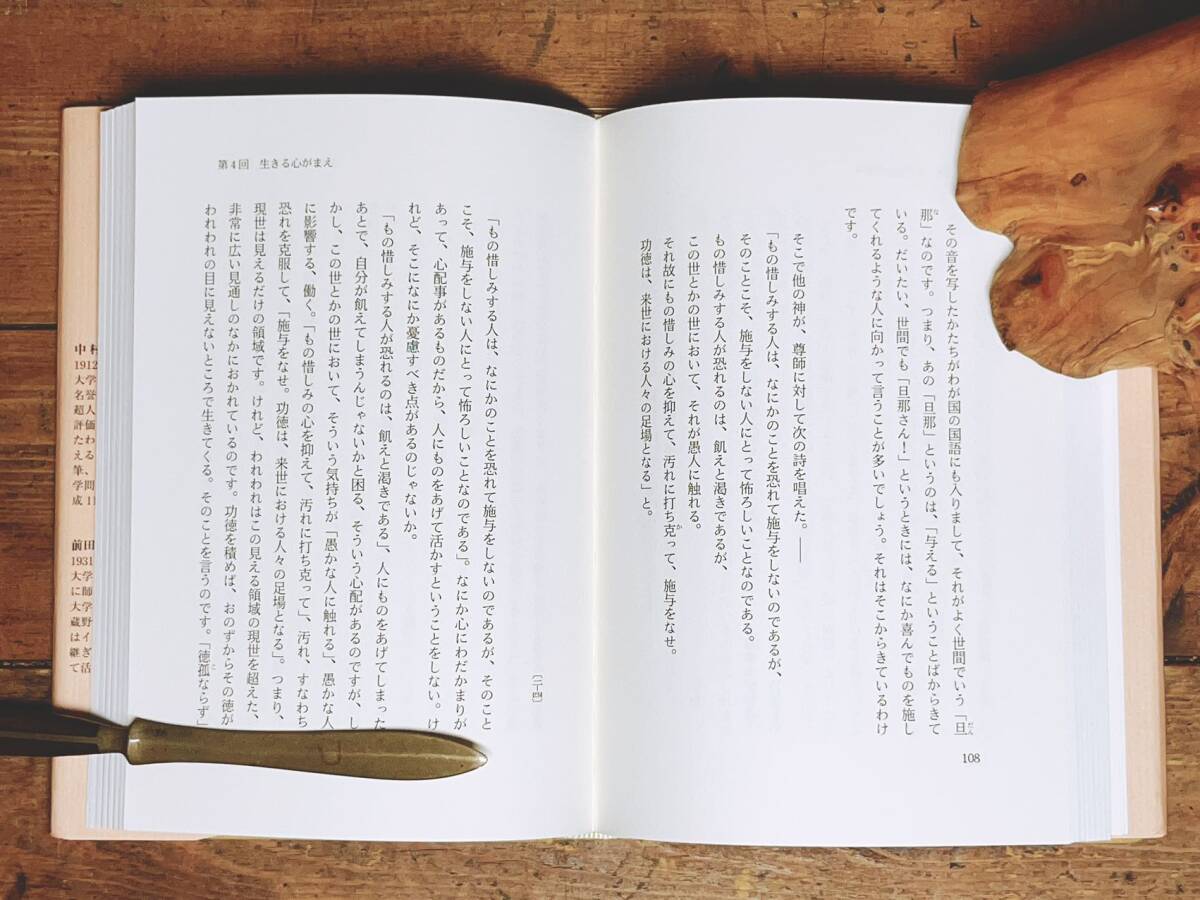 その音を写したかたちがわが国の国語にも入りまして、それがよく世間でいう「旦
那」なのです。つまり、あの「旦那」というのは、「与える」ということばからきて
いる。だいたい、世間でも「旦那さん！」というときには、なにか喜んでものを施し
てくれるような人に向かって言うことが多いでしょう。それはそこからきているわけ
です。
そこで他の神が、尊師に対して次の詩を唱えた。――
「もの惜しみする人は、なにかのことを恐れて施与をしないのであるが、
そのことこそ、施与をしない人にとって怖ろしいことなのである。
もの惜しみする人が恐れるのは、飢えと渇きであるが、
この世とかの世において、それが愚人に触れる。
それ故にもの惜しみの心を抑えて、汚れに打ち克って、施与をなせ。
功徳は、来世における人々の足場となる」と。
108
第4回 生きる心がまえ
〔二-四〕
「もの惜しみする人は、なにかのことを恐れて施与をしないのであるが、そのこと
こそ、施与をしない人にとって怖ろしいことなのである」。なにか心にわだかまりが
あって、心配事があるものだから、人にものをあげて活かすということをしない。け
れど、そこになにか憂慮すべき点があるのじゃないか。
「もの惜しみする人が恐れるのは、飢えと渇きである」、人にものをあげてしまった
あとで、自分が飢えてしまうんじゃないかと困る、そういう心配があるのですが、し
かし、この世とかの世において、そういう気持ちが「愚かな人に触れる」、愚かな人
に影響する、働く。「もの惜しみの心を抑えて、汚れに打ち克って」、汚れ、すなわち
恐れを克服して、「施与をなせ。功徳は、来世における人々の足場となる」。つまり、
現世は見えるだけの領域です。けれど、われわれはこの見える領域の現世を超えた、
非常に広い見通しのなかにおかれているのです。功徳を積めば、おのずからその徳が
われわれの目に見えないところで生きてくる。そのことを言うのです。「徳孤ならず」
中村
1912
大学
名誉
超人
評価
たわ
える
筆、
学問
成 11
前田
1931
大学
に師
大学
蔵野
はイ
継ぎ
て活